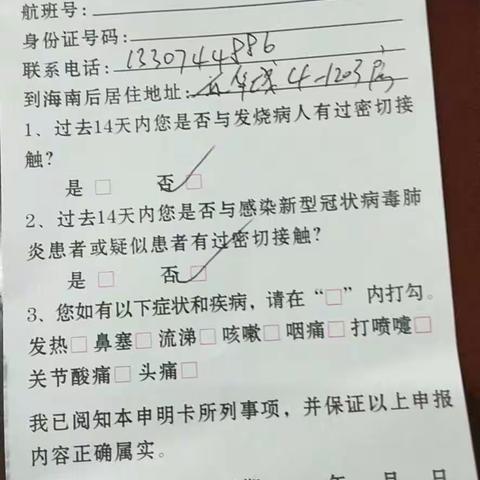 航班号:
身份证号码:
联系电话: 1330744886
到海南后居住地址: 4-1203房
1、过去14天内您是否与发烧病人有过密切接
触?
是 □ 否 □
2、过去14天内您是否与感染新型冠状病毒肺
炎患者或疑似患者有过密切接触?
是 □ 否 □
3、您如有以下症状和疾病,请在“□”内打勾。
发热□ 鼻塞□ 流涕□ 咳嗽□ 咽痛□ 打喷嚏□
关节酸痛□ 头痛□
我已阅知本申明卡所列事项,并保证以上申报
内容正确属实。
年 月 日